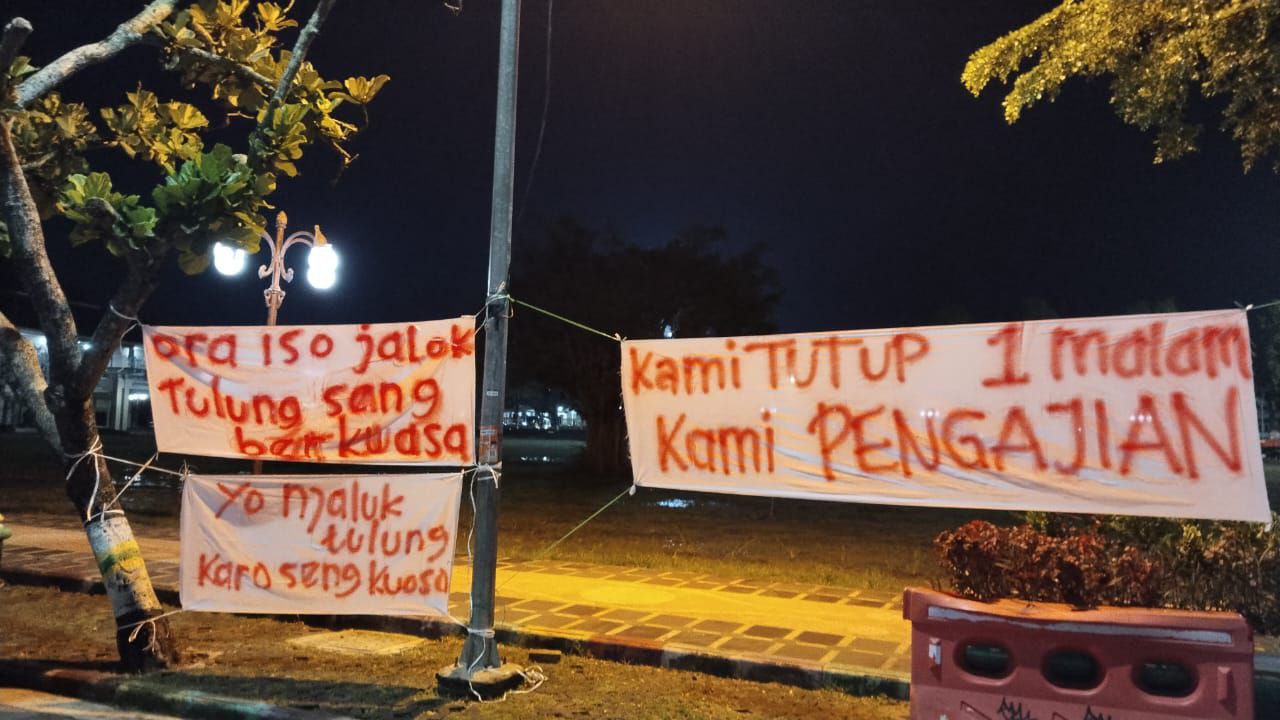 ora iso jalok
Tulung sang
berkuasa
Yo Maluk
tulung
Karo seng kuoso
Kami TUTUP 1 malam
Kami PENGAJIAN